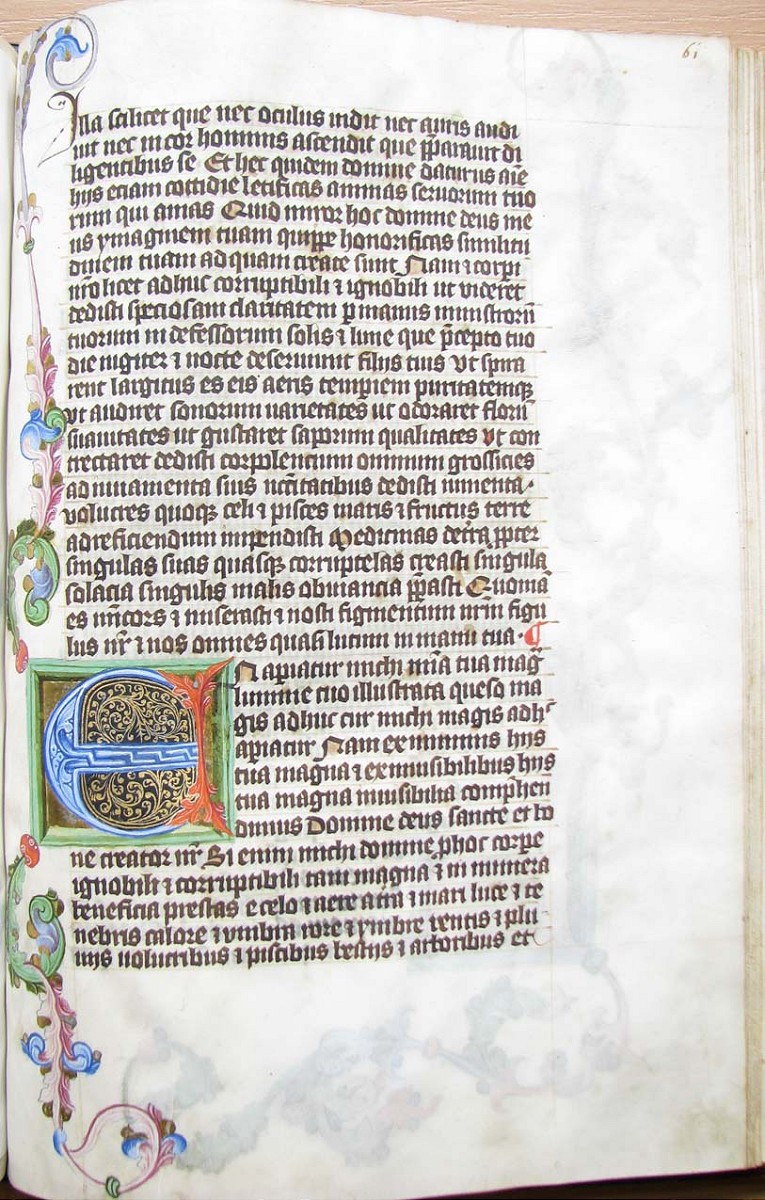 61
Illa scilicet que nec oculus uidit nec auris audi
uit nec in cor hominis ascendit que p̄parauit di
ligentibus se Et hec quidem domine daturus
hijs eciam cottidie letificas animas seruorum tuo
rum qui amas Quid miror hoc domine deus me
us ymaginem tuam quippe honorificas similitu
dinem tuam ad quam create sunt Nam ⁊ corpi
nr̄o licet adhuc corruptibili ⁊ ignobili ut videret
dedisti speciosam claritatem p manus ministroꝝ
tuorum indefessorum solis ⁊ lune que p̄cepto tuo
die iugiter ⁊ nocte deseruiunt filijs tuis Vt spira
rent largitus es eis aeris temperiem puritatemqꝫ
vt audiret sonorum uarietates ut odoraret floꝝ
suauitates ut gustaret saporum qualitates Vt con
trectaret dedisti corpolentium omnium grossicies
ad iuuamenta suis nc̄citatibus dedisti iumenta
volucres quoqꝫ celi ⁊ pisces maris ⁊ fructus terre
ad reficiendum impendisti Medicinas de tr̄a ꝓpter
singulas suas quasqꝫ corruptelas creasti singula
solacia singulis malis obuiancia p̄pasti Quoniā
es mīcors ⁊ miserasti ⁊ nosti figmentum nr̄m figu
lus nr̄ ⁊ nos omnes quasi lutum in manu tua ¶
E Napiatur michi mīa tua mag̅
lumine tuo illustrata queso ma
gis adhuc cur michi magis adh᷒
apiatur Nam ex minimis hijs
tua magna ⁊ ex inuisibilibus hijs
tua magna inuisibilia comphen
dimus Domine deus sancte et bo
ne creator nr̄ Si enim michi domine ꝓ hoc corpe
ignobili ⁊ corruptibili tam magna ⁊ in numera
beneficia prestas e celo ⁊ aere a tr̄a ⁊ mari luce ⁊ te
nebris calore ⁊ vmbra rore ⁊ ymbre uentis ⁊ plu
uijs uolucribus ⁊ piscibus bestijs ⁊ arboribus et